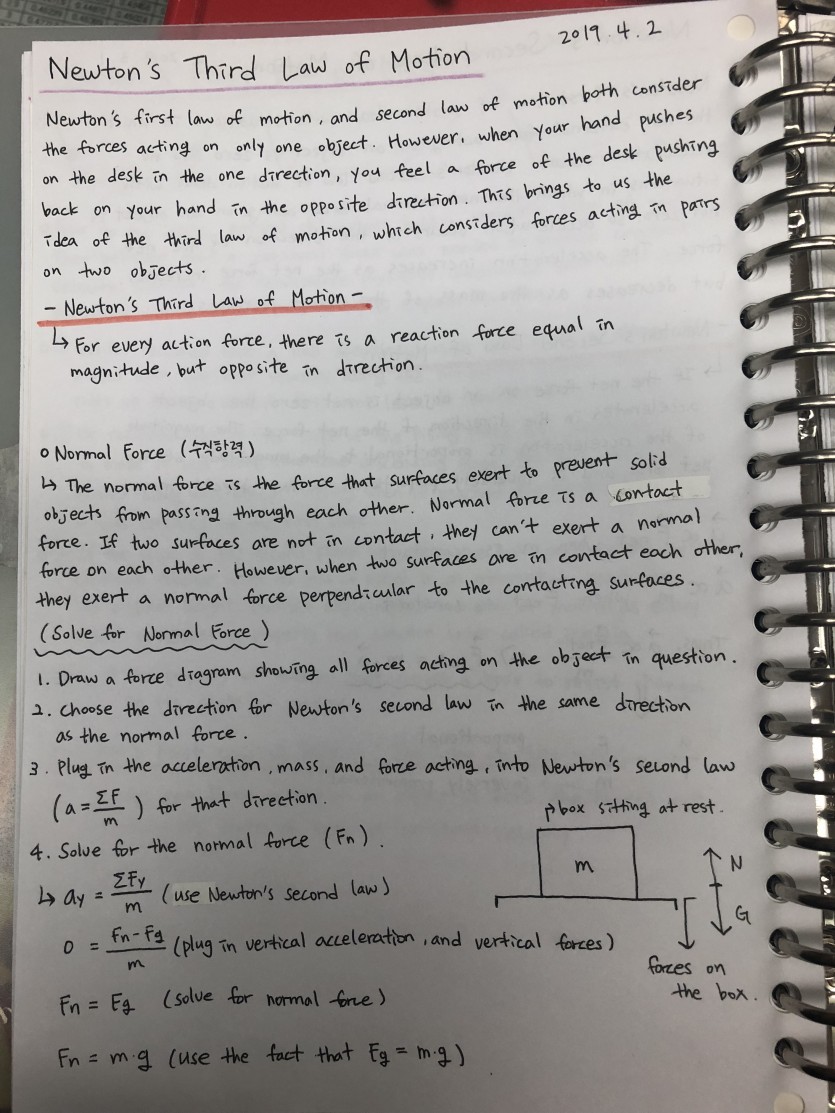 2019.4.2
Newton's Third Law of Motion
Newton's first law of motion, and second law of motion both consider
the forces acting on only one object. However, when your hand pushes
on the desk in the one direction, you feel a force of the desk pushing
back on your hand in the opposite direction. This brings to us the
idea of the third law of motion, which considers forces acting in pairs
on two objects.
- Newton's Third Law of Motion -
↳ For every action force, there is a reaction force equal in
magnitude, but opposite in direction.
o Normal Force (수직항력)
↳ The normal force is the force that surfaces exert to prevent solid
objects from passing through each other. Normal force is a contact
force. If two surfaces are not in contact, they can't exert a normal
force on each other. However, when two surfaces are in contact each other,
they exert a normal force perpendicular to the contacting surfaces.
(Solve for Normal Force)
1. Draw a force diagram showing all forces acting on the object in question.
2. Choose the direction for Newton's second law in the same direction
as the normal force.
3. Plug in the acceleration, mass, and force acting, into Newton's second law
(a = ΣF/m) for that direction.
4. Solve for the normal force (Fn).
↳ ay = ΣFy/m (use Newton's second law)
0 = Fn-Fg/m (plug in vertical acceleration, and vertical forces)
Fn = Fg (solve for normal force)
Fn = m·g (use the fact that Fg = m·g)
box sitting at rest.
m
N
G
forces on
the box.